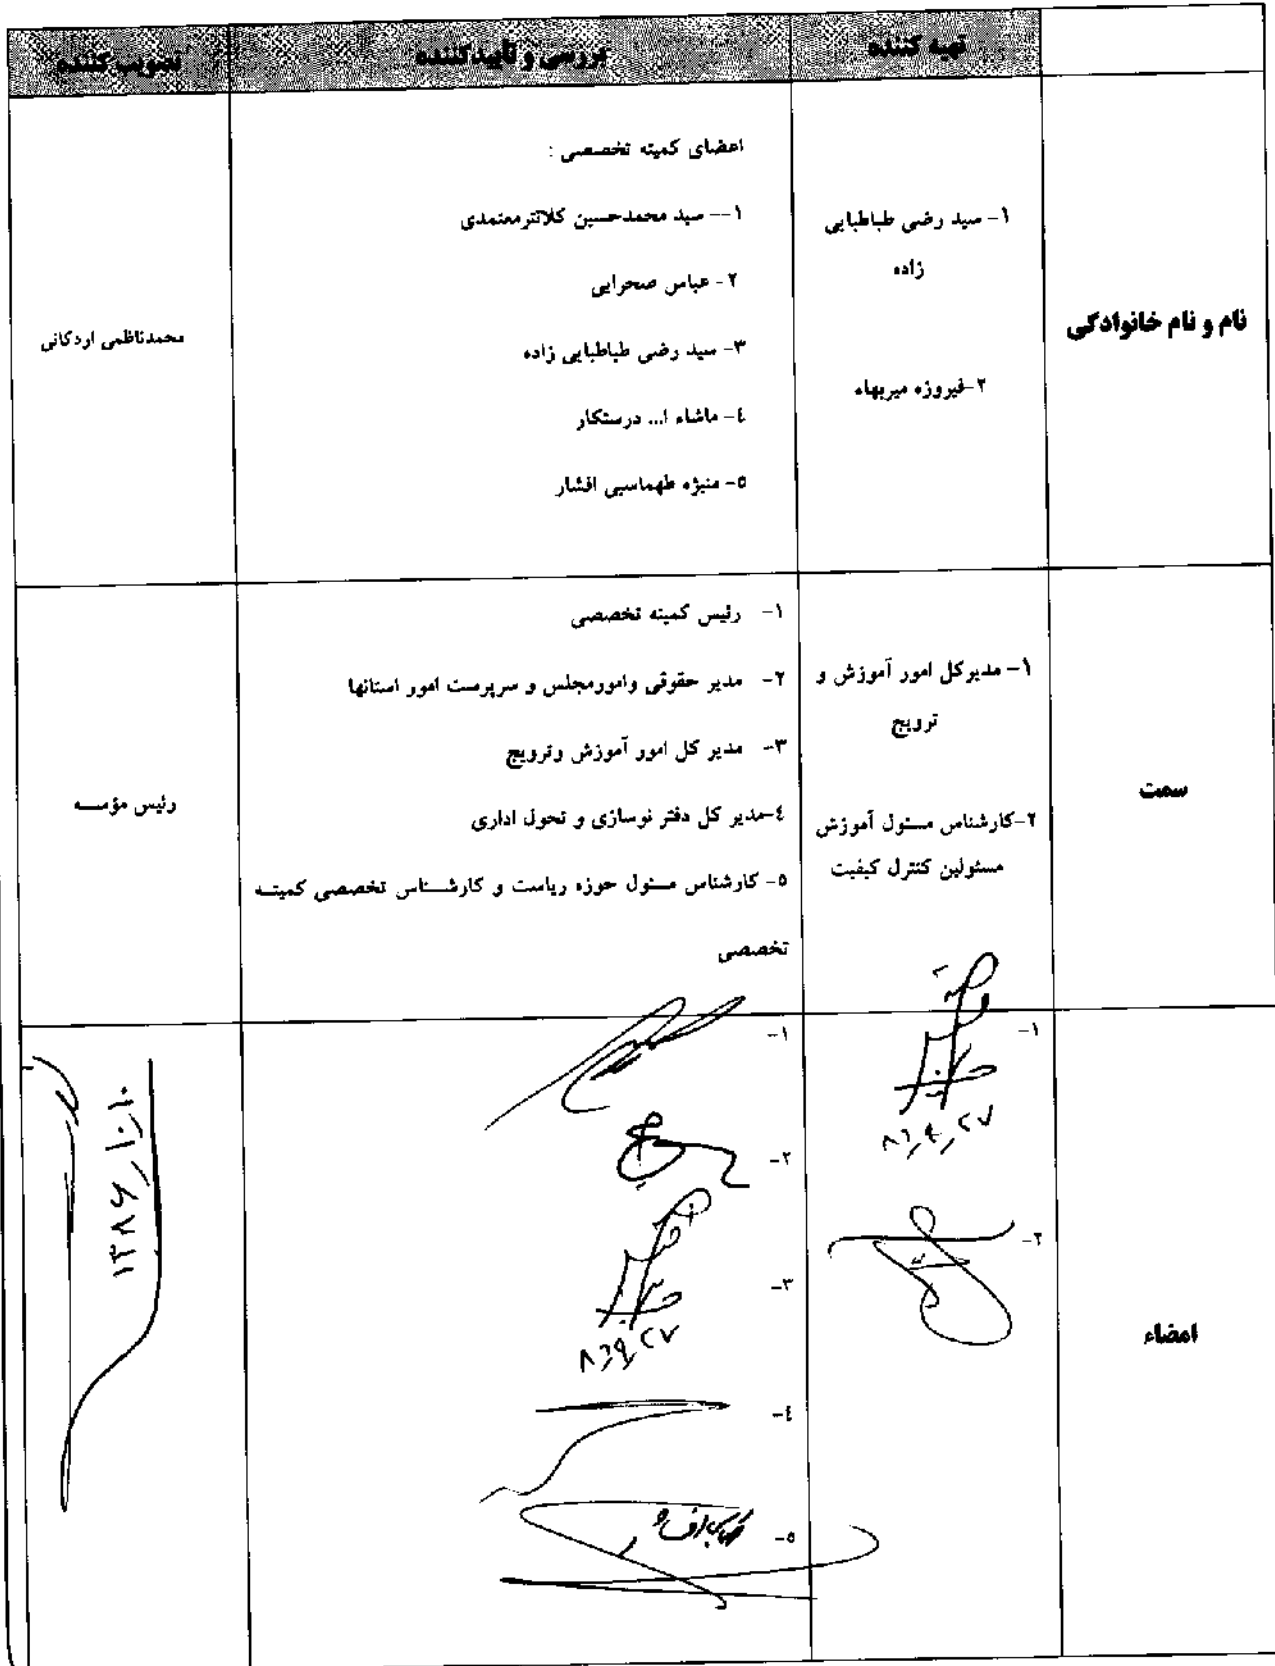 تهیه کننده
بررسی و تأییدکننده
تصویب کننده
نام و نام خانوادگی
۱- سید رضی طباطبایی
زاده
۲-فیروزه میربهاء
اعضای کمیته تخصصی :
۱-- سید محمدحسین کلانترمعتمدی
۲- عباس صحرایی
۳- سید رضی طباطبایی زاده
٤- ماشاء ا... درستکار
۵- منیژه طهماسبی افشار
محمدناظمی اردکانی
سمت
۱- مدیرکل امور آموزش و
ترویج
۲-کارشناس مسئول آموزش
مسئولین کنترل کیفیت
۱- رئیس کمیته تخصصی
۲- مدیر حقوقی وامورمجلس و سرپرست امور استانها
۳- مدیر کل امور آموزش وترویج
٤-مدیر کل دفتر نوسازی و تحول اداری
۵- کارشناس مسئول حوزه ریاست و کارشناس تخصصی کمیته
تخصصی
رئیس مؤسسه
امضاء
۱-
۲-
۱-
۲-
۳-
٤-
۵-
۱۳۸۶/۱۰/۱۰